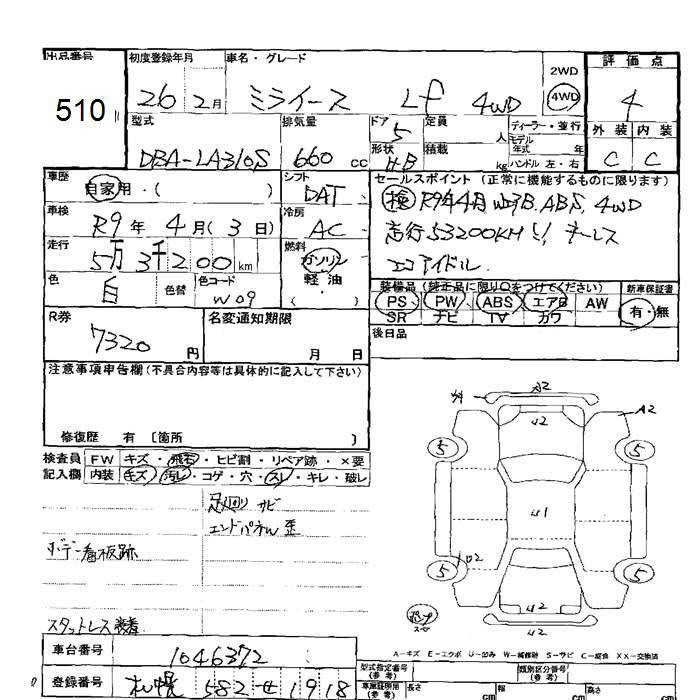 出品番号 510
初度登録年月 26 2月
車名・グレード ミライース Lf 4WD
2WD 4WD
評価点 4
外装 内装
C C
型式 DBA-LA310S
排気量 660 CC
ドア 5
定員 人
形状 HB
積載 kg
ディーラー・並行
モデル年式 年
ハンドル 左・右
車歴 自家用・( )
シフト DAT
車検 R9年4月(3日)
冷房 AC
走行 5万3千200km
燃料 ガソリン 軽油・( )
色 白
色替
色コード W09
セールスポイント (正常に機能するものに限ります)
検 R9年4月 WB, ABS, 4WD
走行53200KM キーレス
エコアイドル
装備品 (純正品に限り○をつけてください)
PS PW ABS エアB AW
SR ナビ TV カワ
新車保証書
有・無
R券 7320円
名変通知期限 月 日
後日品
注意事項申告欄 (不具合内容等は具体的に記入して下さい)
修復歴 有 〔箇所 〕
検査員 FW キズ・飛石・ヒビ割・リペア跡・×要
記入欄 内装 キズ・汚レ・コゲ・穴・スレ・キレ・破レ
足廻り サビ
エンドパネル 歪
ボデー看板跡
スタットレス装着
A2
U2
A2
5 5
U1
U2
5 5
U2
U2
A-キズ E-エクボ U-凹み W-補修跡 S-サビ C-腐食 XX-交換済
車台番号 1046372
登録番号 札幌 582 せ 1918
型式指定番号 (参考)
類別区分番号 (参考)
車庫証明用 (参考)
長さ cm
幅 cm
高さ cm